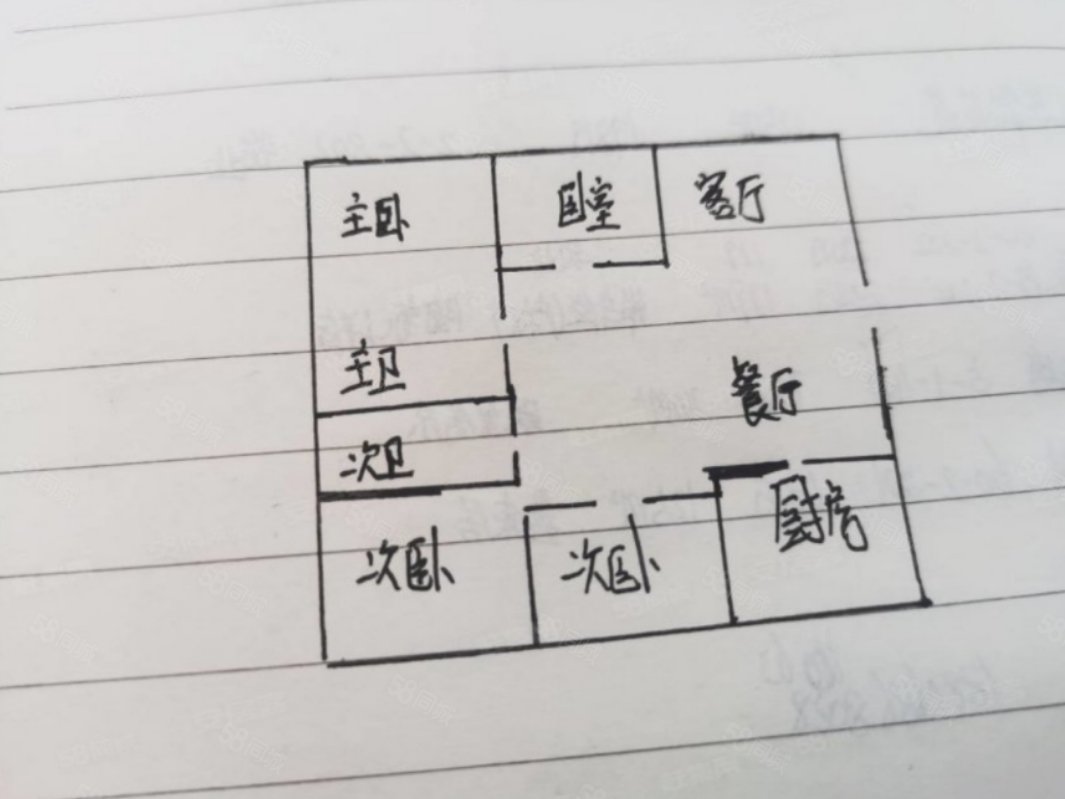 主卧 卧室 客厅
主卫 餐厅
次卫
次卧 次卧 厨房